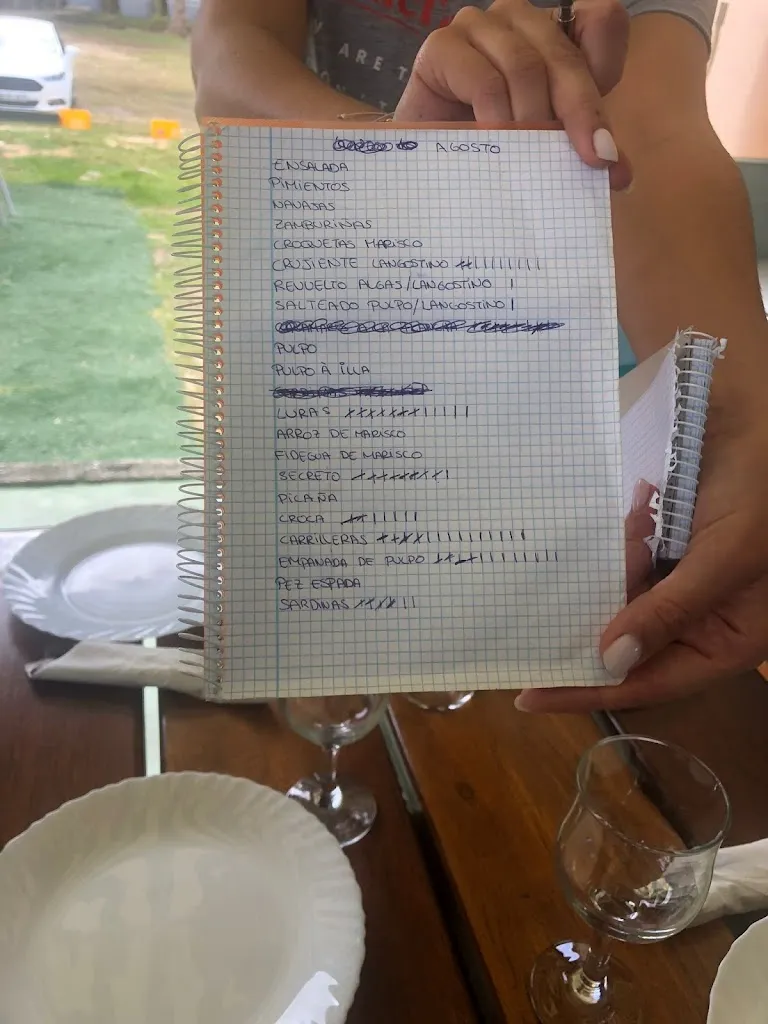 ARE T
AGOSTO
ENSALADA
PIMIENTOS
NAVAJAS
ZAMBURIÑAS
CROQUETAS MARISCO
CRUJIENTE LANGOSTINO
REVUELTO ALGAS/LANGOSTINO
SALTEADO PULPO/LANGOSTINO
PULPO
PULPO À ILLA
LURAS
ARROZ DE MARISCO
FIDEGUA DE MARISCO
SECRETO
PICAÑA
CROCA
CARRILLERAS
EMPANADA DE PULPO
PEZ ESPADA
SARDINAS